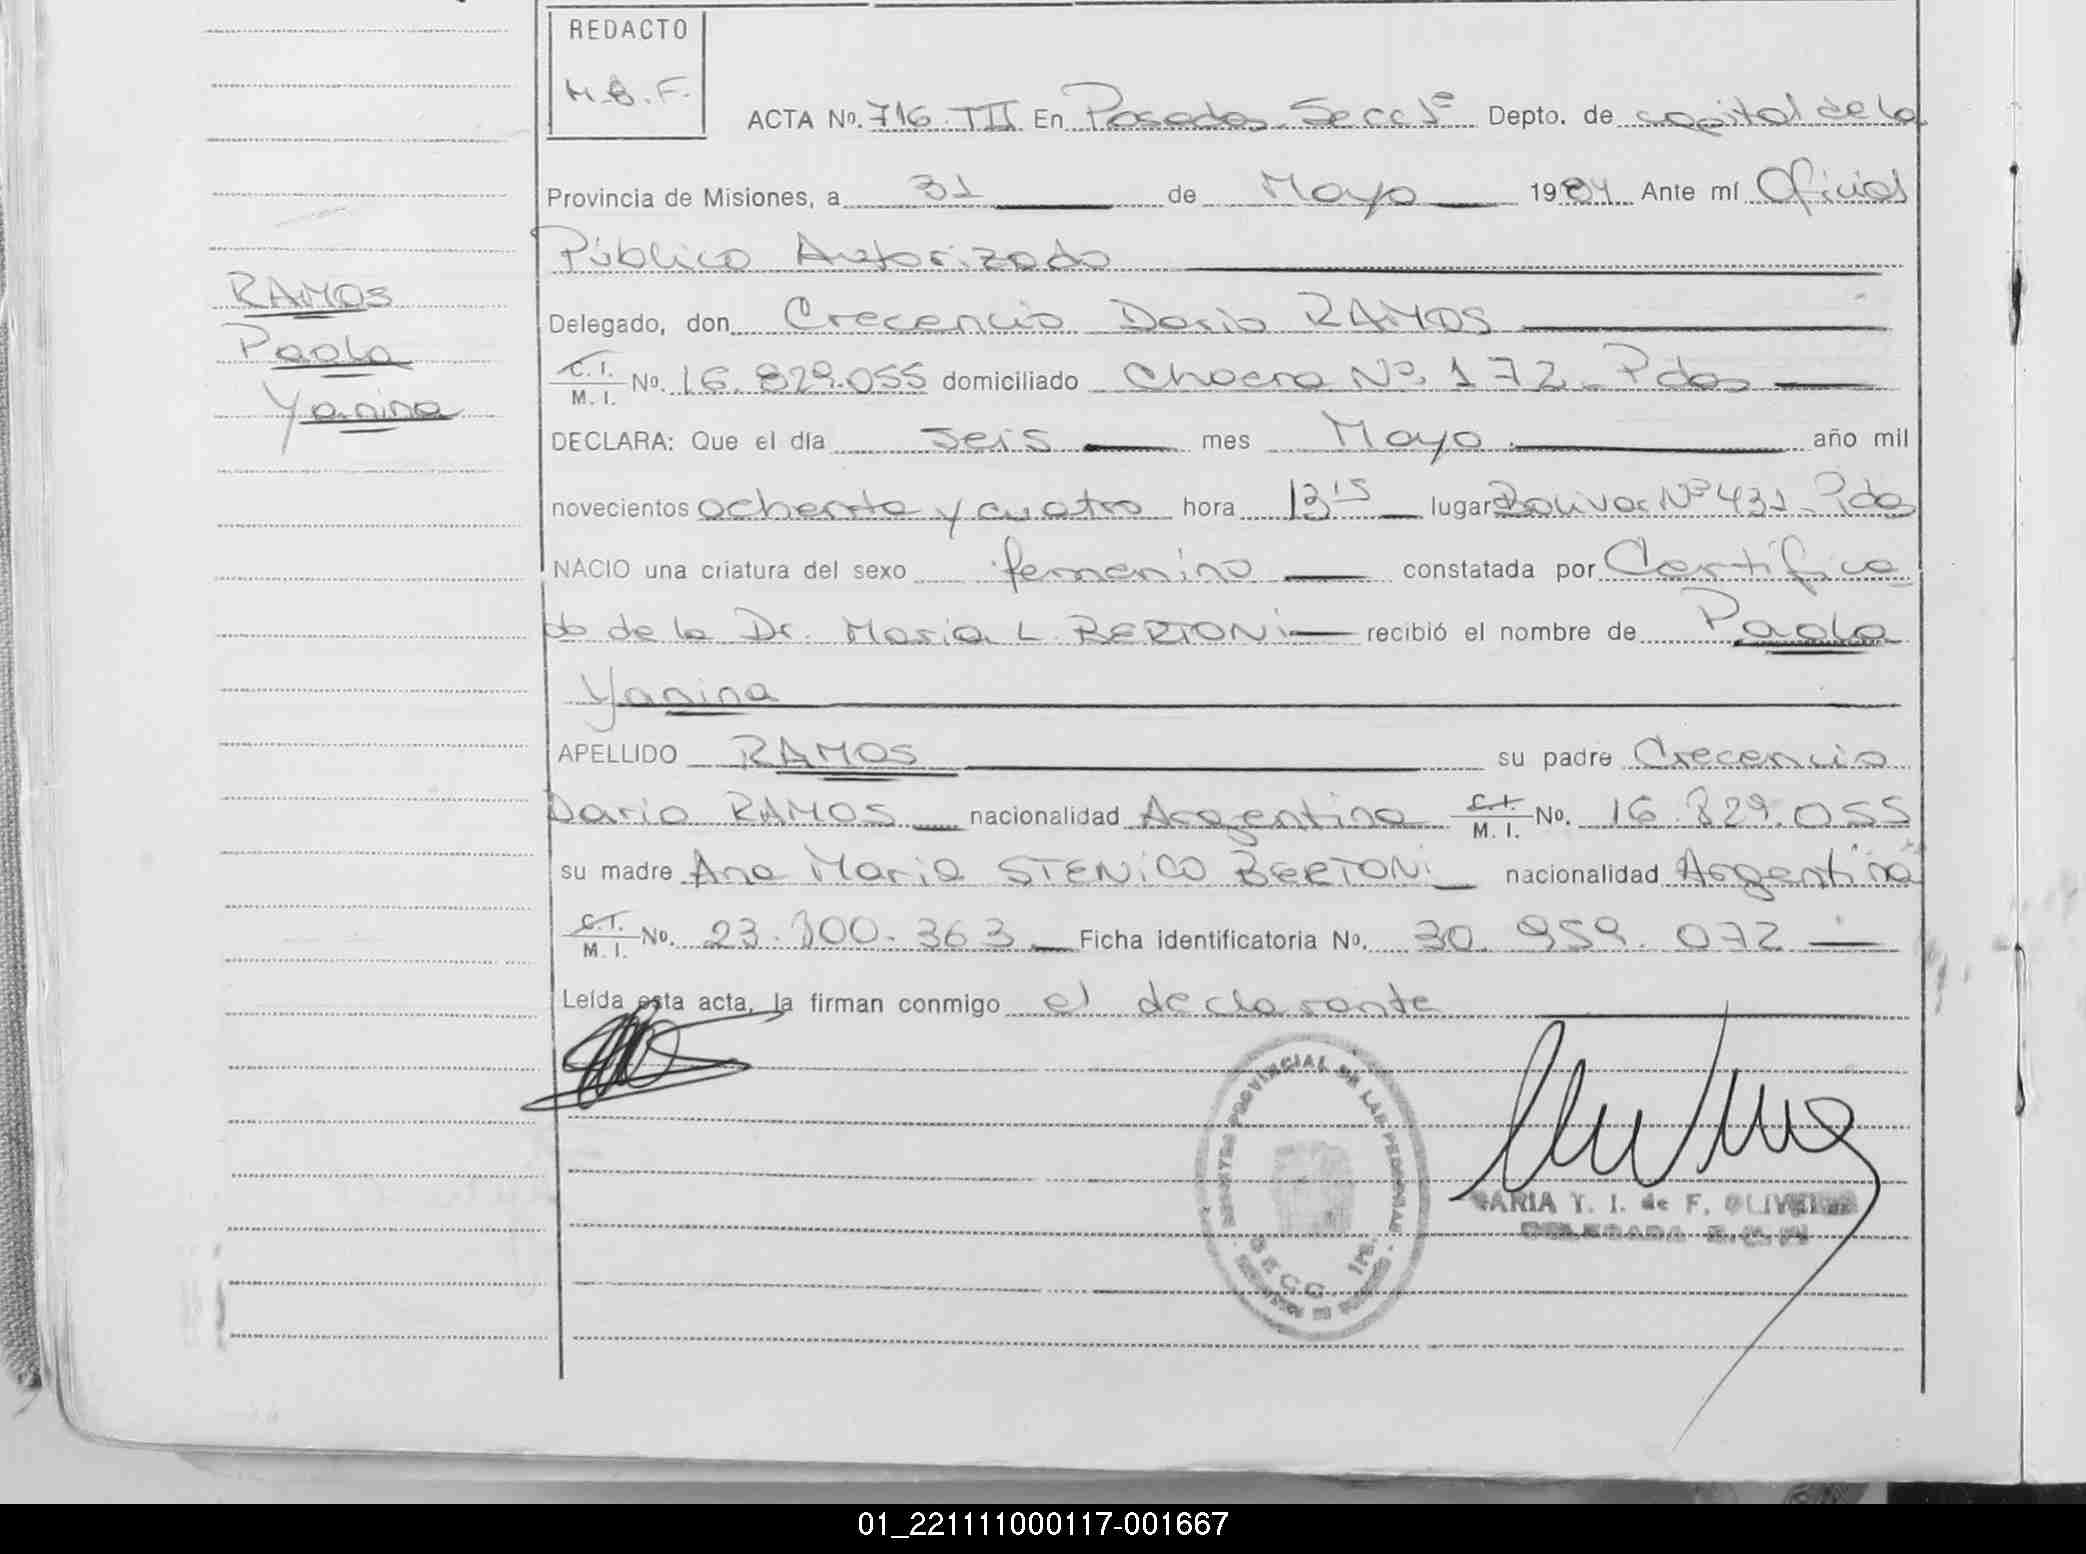 REDACTO
M.B.F.
ACTA Nº. 716. TII En Posadas Secc 1ª Depto. de capital de la
Provincia de Misiones, a 31 de Mayo 1984 Ante mí Oficial
Público Autorizado
Delegado, don Crecencio Dario RAMOS
C. I. / M. I. No. 16.829.055 domiciliado Chacra Nº. 172 - Pdas
DECLARA: Que el día seis mes Mayo año mil
novecientos ochenta y cuatro hora 13'15 lugar Bolivar Nº 431 - Pdas
NACIO una criatura del sexo femenino constatada por Certifica
do de la Dr. Maria L. BERTONI recibió el nombre de Paola
Yanina
APELLIDO RAMOS su padre Crecencio
Dario RAMOS nacionalidad Argentina C.I. / M. I. No. 16.829.055
su madre Ana Maria STENICO BERTONI nacionalidad Argentina
C.I. / M. I. No. 23.300.363 Ficha identificatoria No. 30.959.072
Leída esta acta, la firman conmigo el declarante
RAMOS
Paola
Yanina
REGISTRO PROVINCIAL DE LAS PERSONAS
SECC. 1ra.
MARIA Y. I. de F. OLIVEIRA
DELEGADA
01_221111000117-001667